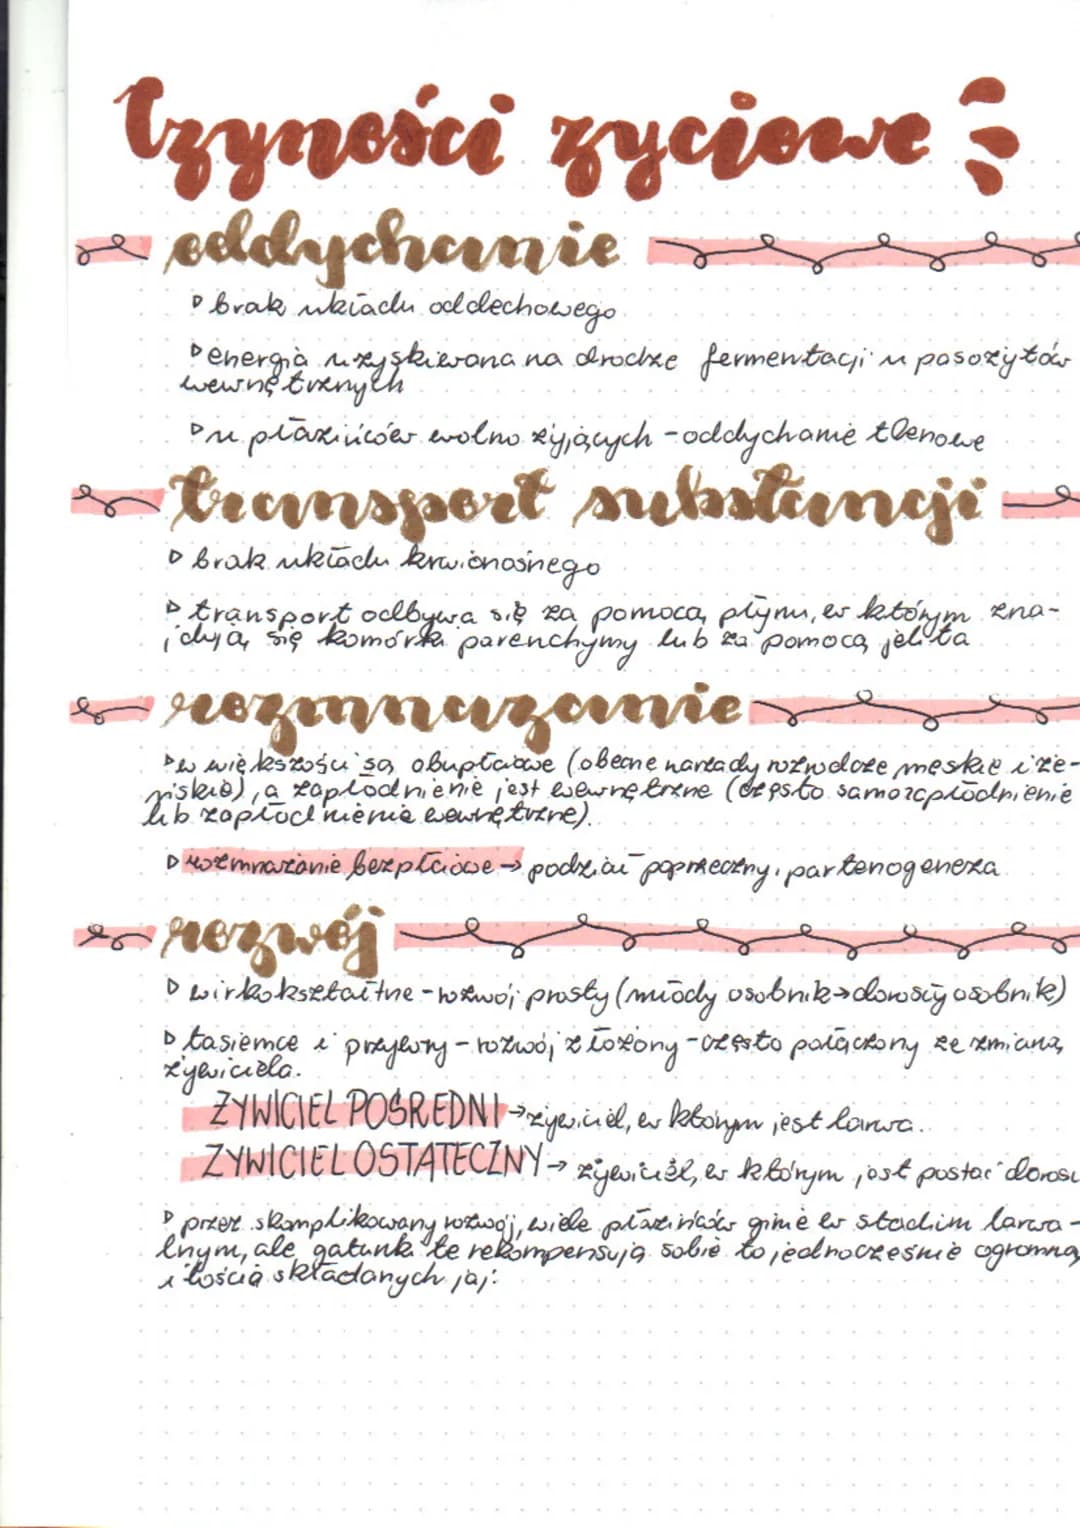 Czyności zyciowe
oddychanie
▷ brak układu oddechowego
▷ energia uzyskiwana na drodze fermentacji u pasożytów
wewnętrznych
▷ u płazińców wolno żyjących - oddychanie tlenowe
transport substancji
▷ brak układu krwionośnego
▷ transport odbywa się za pomocą płynu, w którym zna-
jdują się komórki parenchymy lub za pomocą jelita
rozmnażanie
▷ w większości są obupłciowe (obecne narządy rozrodcze męskie i że-
ńskie), a zapłodnienie jest wewnętrzne (często samozapłodnienie
lub zapłodnienie wewnętrzne).
▷ rozmnażanie bezpłciowe → podział poprzeczny, partenogeneza
rozwój
▷ wirkokształtne - rozwój prosty (młody osobnik → dorosły osobnik)
▷ tasiemce i przywry - rozwój złożony - często połączony ze zmianą
żywiciela.
ŻYWICIEL POŚREDNI → żywiciel, w którym jest larwa.
ŻYWICIEL OSTATECZNY → żywiciel, w którym jest postać doros
▷ przez skomplikowany rozwój, wiele płazińców ginie w stadium larwa-
lnym, ale gatunki te rekompensują sobie to jednocześnie ogromną
ilością składanych jaj.